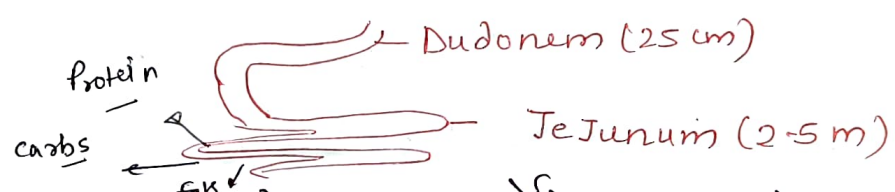 Dudonem (25 cm)
Protein
JeJunum (2-5 m)
carbs